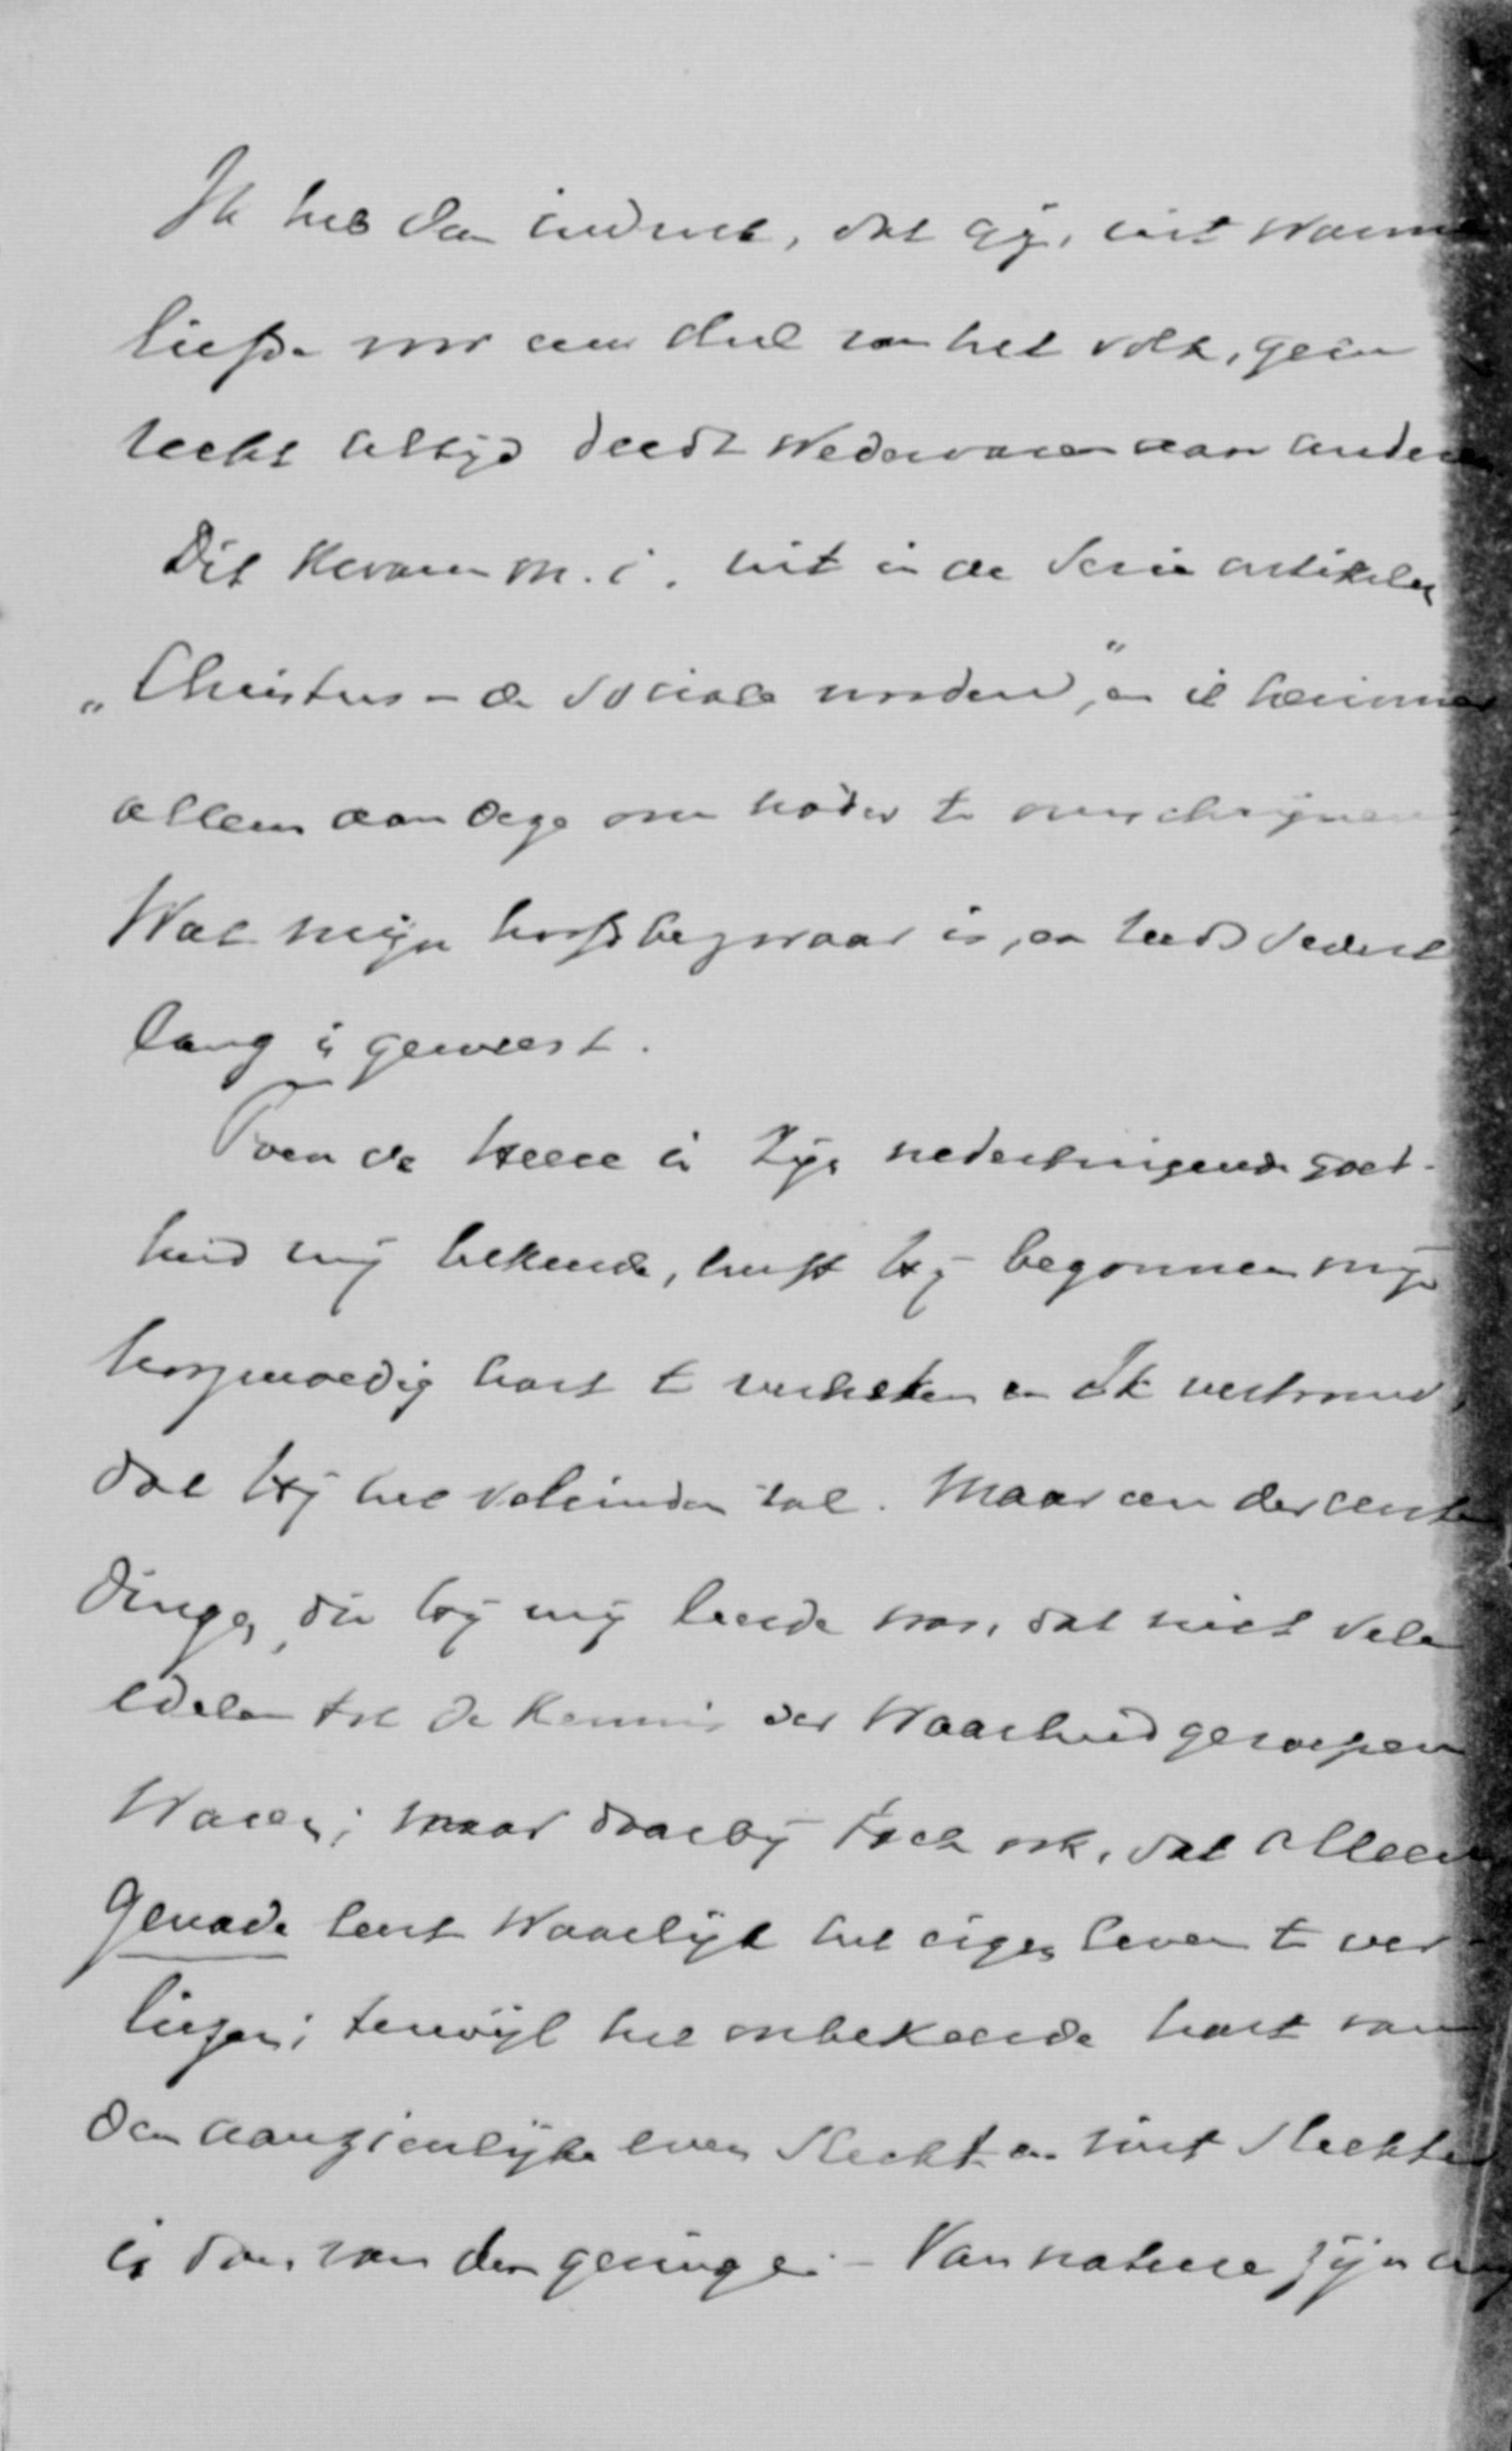 Ik heb den indruk, dat gij, uit warme
liefde voor een deel van het volk, geen
recht altijd deedt wedervaren aan anderen.
Dit kwam m.i. uit in de serie artikelen
„Christus en de sociale nooden”, en ik herinner
alleen aan deze om nader te omschrijven,
Wat mijn hoofdbezwaar is, en reeds sedert
lang is geweest.
Toen de Heere in Zijn nederbuigende goed-
heid mij bekeerde, heeft Hij begonnen mijn
hoogmoedig hart te verbreken en ik vertrouw,
dat Hij het voleinden zal. Maar een der eerste
dingen, die Hij mij leerde was, dat niet vele
edelen tot de kennis der Waarheid geroepen
Waren; maar daarbij toch ook, dat alleen
genade leert Waarlijk het eigen leven te ver-
liezen; terwijl het onbekeerde hart van
den aanzienlijke even slecht en niet slechter
is dan van den geringe. – Van nature zijn